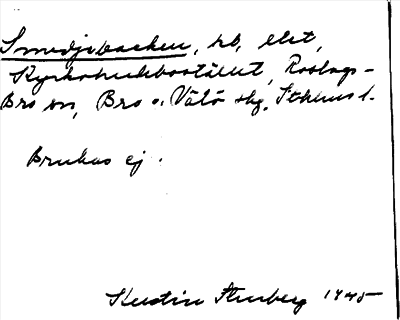 Smedjebacken, rb, elet,
Kyrkoherdebostället, Roslags-
Bro sn, Bro o. Vätö skg. Sthlms l.
Brukas ej.
Kerstin Stenberg 1945